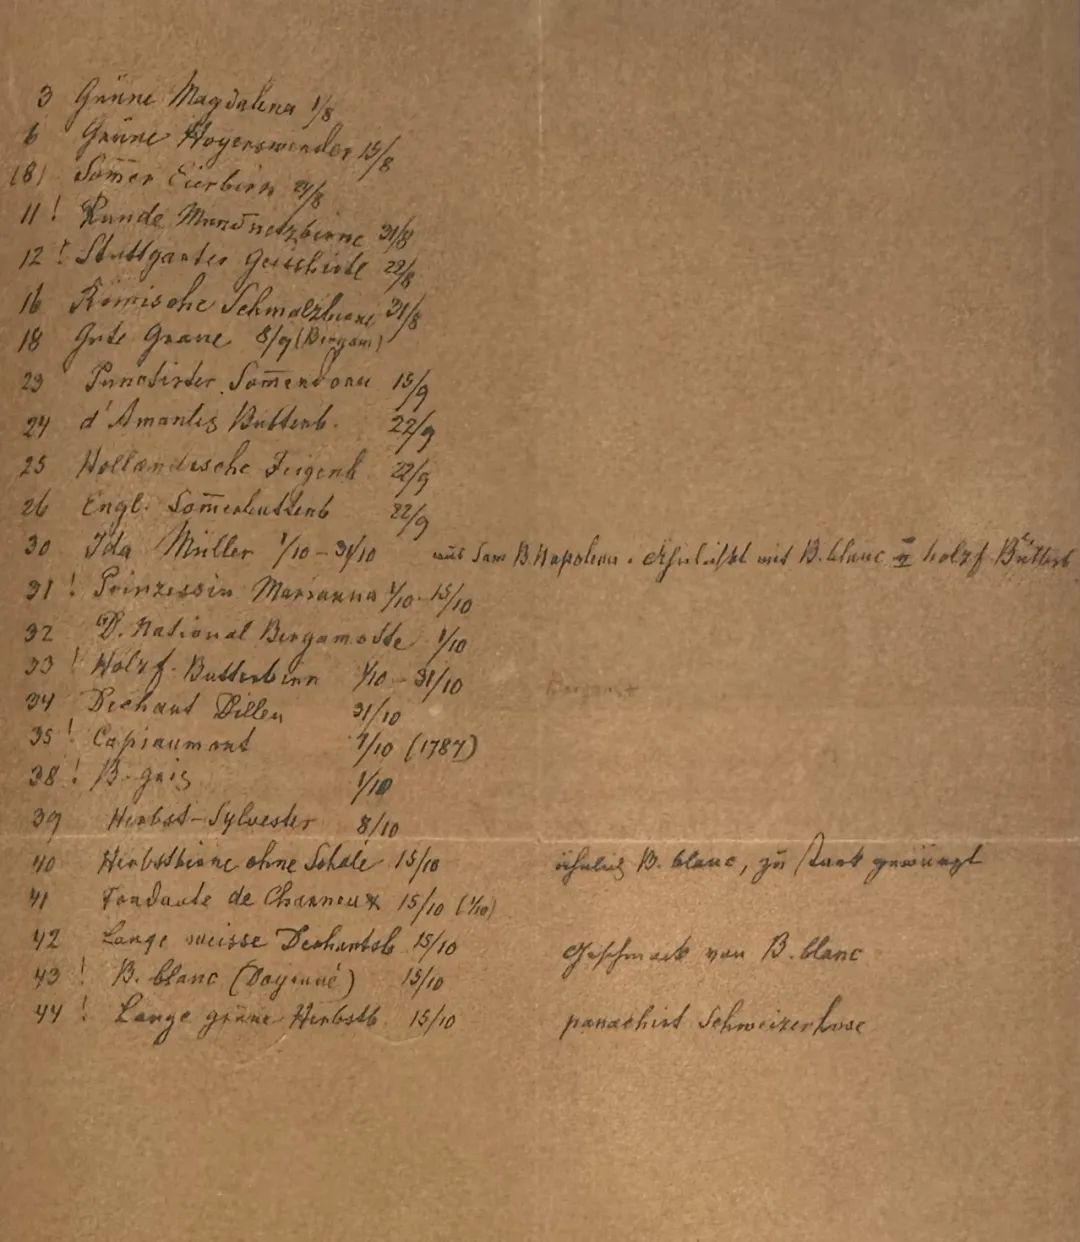 3 Grüne Magdalena 1/8
6 Grüne Hoyerswerder 15/8
(8) Som̅er Eierbirn /8
11 ! Runde Mundnetzbirne 31/8
12 ! Stuttgarter Geisshirtl 22/8
16 Römische Schmalzbirne 31/8
18 Gute Graue 8/9 (Bergam)
23 Punctirter Som̅erdorn 15/9
24 d'Amanlis Butterb. 22/9
25 Holländische Feigenb 22/9
26 Engl. Som̅erbutterb 22/9
30 Ida Müller 1/10 - 31/10 aus Sam B. Napoleon. Ähnlichkt mit B. blanc holzf. Butterb
31 ! Prinzessin Marianna 1/10-15/10
32 D. National Bergamotte 1/10
33 ! Holzf. Butterbirn 1/10 - 31/10 Bergamt
34 Dechant Dillen 31/10
35 ! Capiaumont 1/10 (1787)
38 ! B. gris 1/10
39 Herbst-Sylvester 8/10
40 Herbstbirne ohne Schale 15/10 ähnlich B. blanc, zu stark gewürzt
41 Fondante de Charneux 15/10 (1/10)
42 Lange weisse Dechantsb 15/10 Geschmack von B. blanc
43 ! B. blanc (Doyenné) 15/10
44 ! Lange grüne Herbstb 15/10 panachirt Schweizerhose